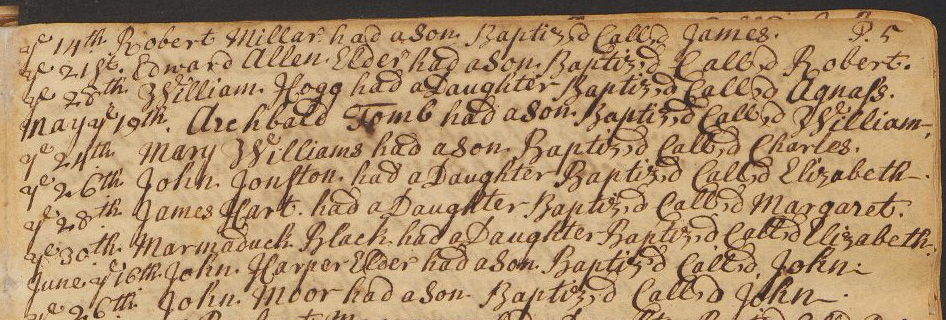 yᵉ 14th. Robert Millar had a Son. Baptiz,d Call,d James. P. 5
yᵉ 21st. Edward Allen. Elder had a Son. Baptiz,d Call,d Robert.
yᵉ 28th. William. Hogg had a Daughter Baptiz,d Call,d Agnass.
May yᵉ 19th. Archbald Tomb had a Son. Baptiz,d Call,d William.
yᵉ 24th. Mary Williams had a Son. Baptiz,d Call,d Charles.
yᵉ 26th John. Jonston. had a Daughter Baptiz,d Call,d Elizabeth.
yᵉ 28th James Hart. had a Daughter Baptiz,d Call,d Margaret.
yᵉ 30th. Marmaduck Black had a Daughter Baptiz,d Call,d Elizabeth.
June. yᵉ 16th John. Harper Elder had a Son. Baptiz,d Call,d, John.
yᵉ 26th John. Moor had a Son Baptiz,d Call,d John.